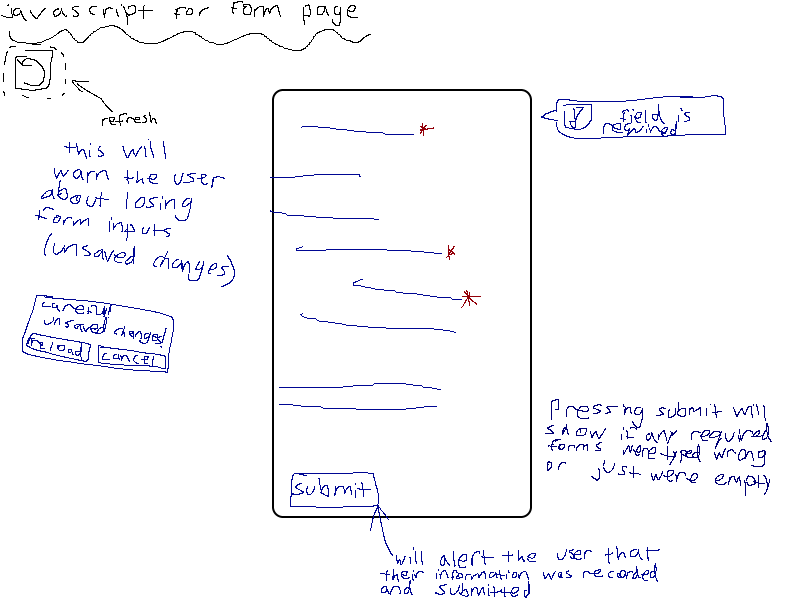 javascript for form page
refresh
this will
warn the user
about losing
form inputs
(unsaved changes)
careful!
unsaved changes!
reload cancel
* field is
required
*
*
submit
Pressing submit will
show if any required
forms were typed wrong
or just were empty
will alert the user that
their information was recorded
and submitted